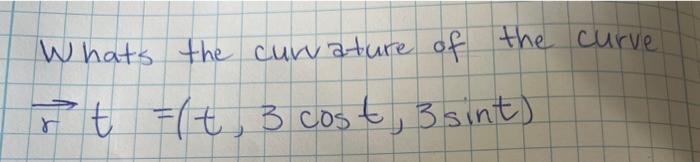 Whats the curvature of the curve
r⃗ t =(t, 3 cost, 3sint)